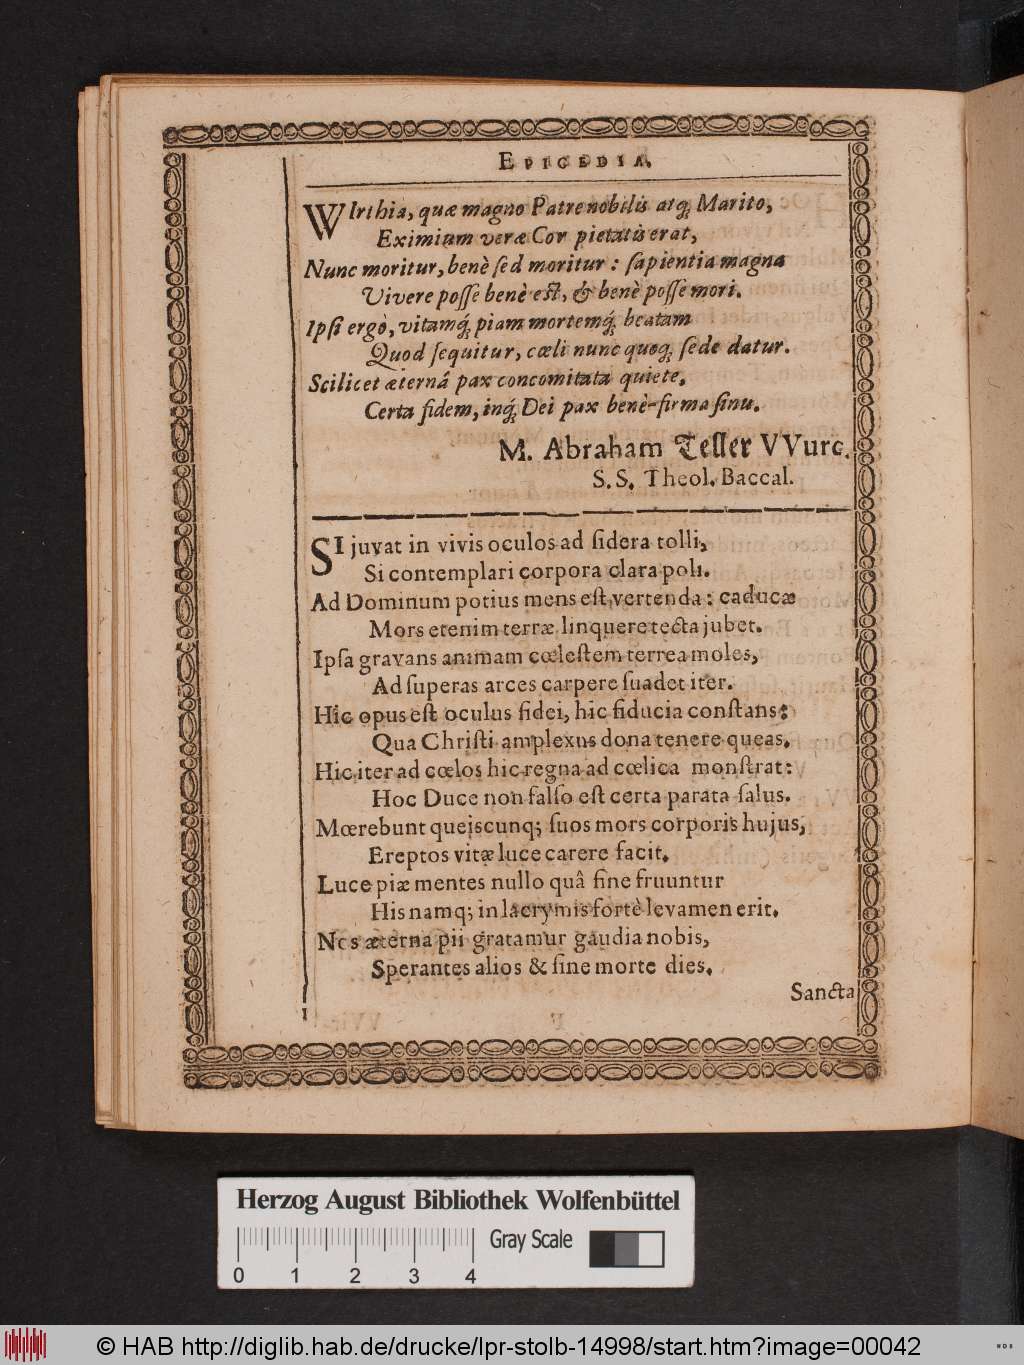 EPICEDIA.
WIrthia, quæ magno Patre nobilis atq́; Marito,
Eximium veræ Cor pietatis erat,
Nunc moritur, benè ſed moritur: ſapientia magna
Vivere poſſe benè eſt, & benè poſſe mori.
Ipſi ergò, vitamq́; piam mortemq́; beatam
Quod ſequitur, cœli nunc quoq; ſede datur.
Scilicet æternâ pax concomitata quiete,
Certa fidem, inq́; Dei pax benè-firma ſinu.
M. Abraham Teller VVurc.
S.S. Theol. Baccal.
SI juvat in vivis oculos ad ſidera tolli,
Si contemplari corpora clara poli.
Ad Dominum potius mens eſt vertenda: caducæ
Mors etenim terræ linquere tecta jubet.
Ipſa gravans animam cœleſtem terrea moles,
Ad ſuperas arces carpere ſuadet iter.
Hîc opus eſt oculus fidei, hic fiducia conſtans:
Qua Chriſti amplexus dona tenere queas.
Hic iter ad cœlos hic regna ad cœlica monſtrat:
Hoc Duce non falſo eſt certa parata ſalus.
Mœrebunt queiscunq; ſuos mors corporis hujus,
Ereptos vitæ luce carere facit.
Luce piæ mentes nullo quâ fine fruuntur
His namq; in lacrymis fortè levamen erit.
Nos æterna pii gratamur gaudia nobis,
Sperantes alios & ſine morte dies.
Sancta
Herzog August Bibliothek Wolfenbüttel
0 1 2 3 4
Gray Scale
© HAB http://diglib.hab.de/drucke/lpr-stolb-14998/start.htm?image=00042